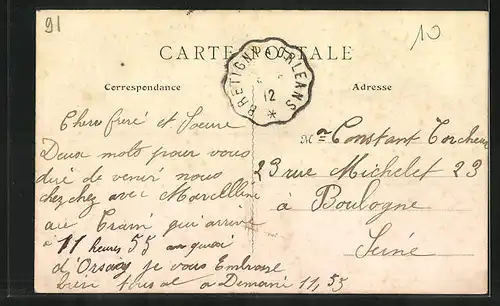 91
10
CARTE POSTALE
BRETIGNY A ORLEANS
12
Correspondance
Adresse
Chere freré et Soeure
Deux mots pour vous
diré de veneri nous
cherchez avec Marcelline
au Train qui arrive
à 11 heures 55 au quai
d'Orsay je vous Embrasse
bien a Demani 11,55
Mr Constant
23 rue Michelet 23
à Boulogne
Seine